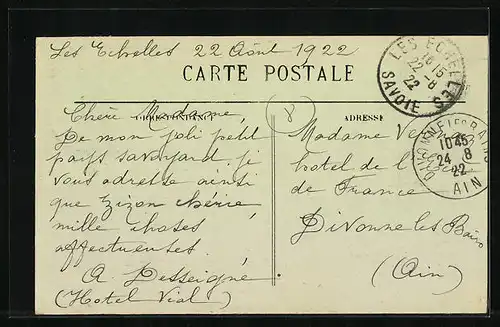 Les Echelles 22 Août 1922
CARTE POSTALE
CORRESPONDANCE
ADRESSE
Chère Madame,
De mon joli petit
pays savoyard, je
vous adresse ainsi
que Zizon chérie,
mille choses
affectueuses.
A Desseigné
(Hotel Vial)
8
Madame
hotel de
de France
Divonne les Bains
(Ain)
LES ECHELLES
16 15
22 - 8
22
SAVOIE
DIVONNE LES BAINS
10 45
24 8
22
AIN